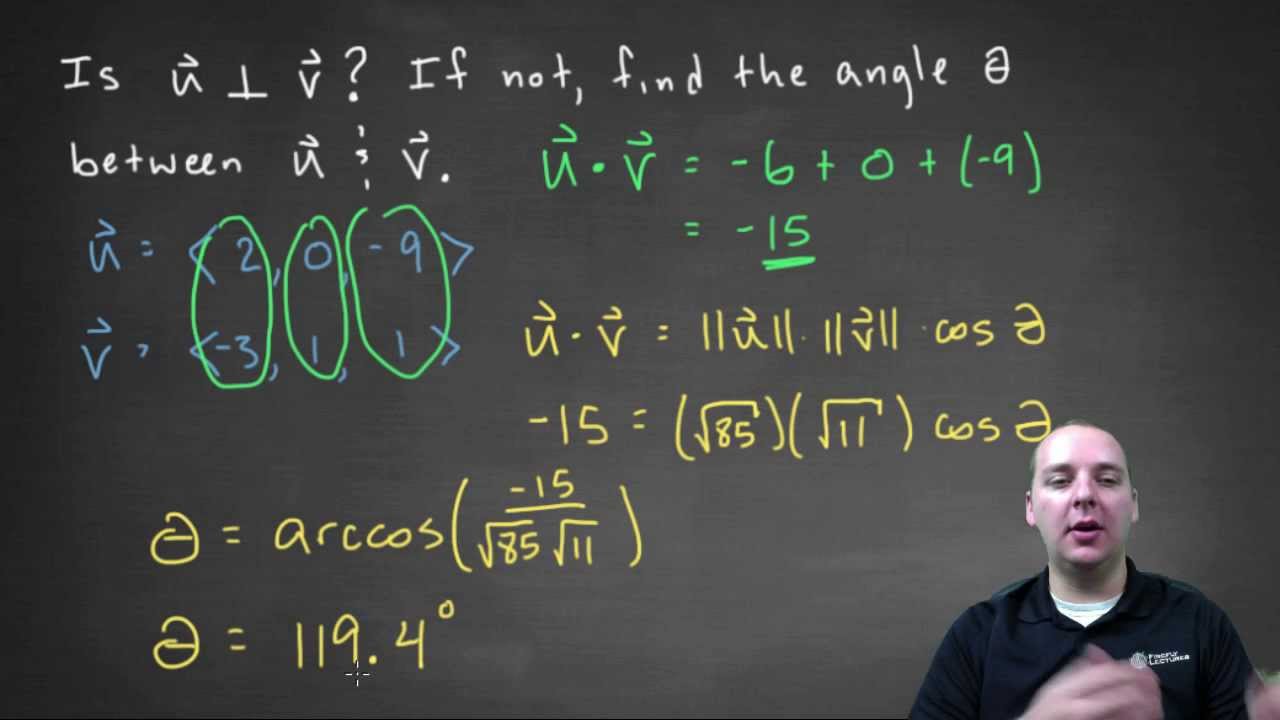 Is u⃗ ⊥ v⃗? If not, find the angle θ
between u⃗ & v⃗.
u⃗ · v⃗ = -6 + 0 + (-9)
= -15
u⃗ = <2, 0, -9>
v⃗ = <-3, 1, 1>
u⃗ · v⃗ = ||u⃗|| · ||v⃗|| · cos θ
-15 = (√85)(√11) cos θ
θ = arccos(-15 / √85 √11)
θ = 119.4°
FIREFLY
LECTURES